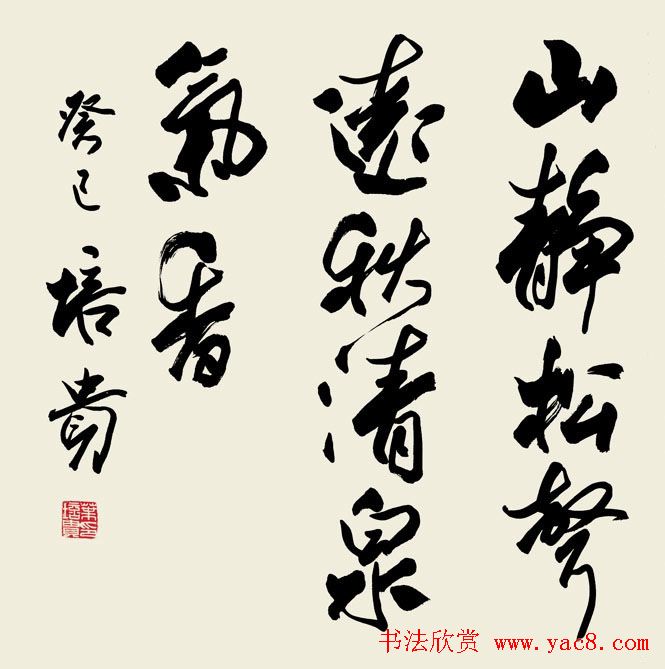 山靜松聲
遠秋清泉
氣香
癸巳培貴
书法欣赏 www.yac8.com